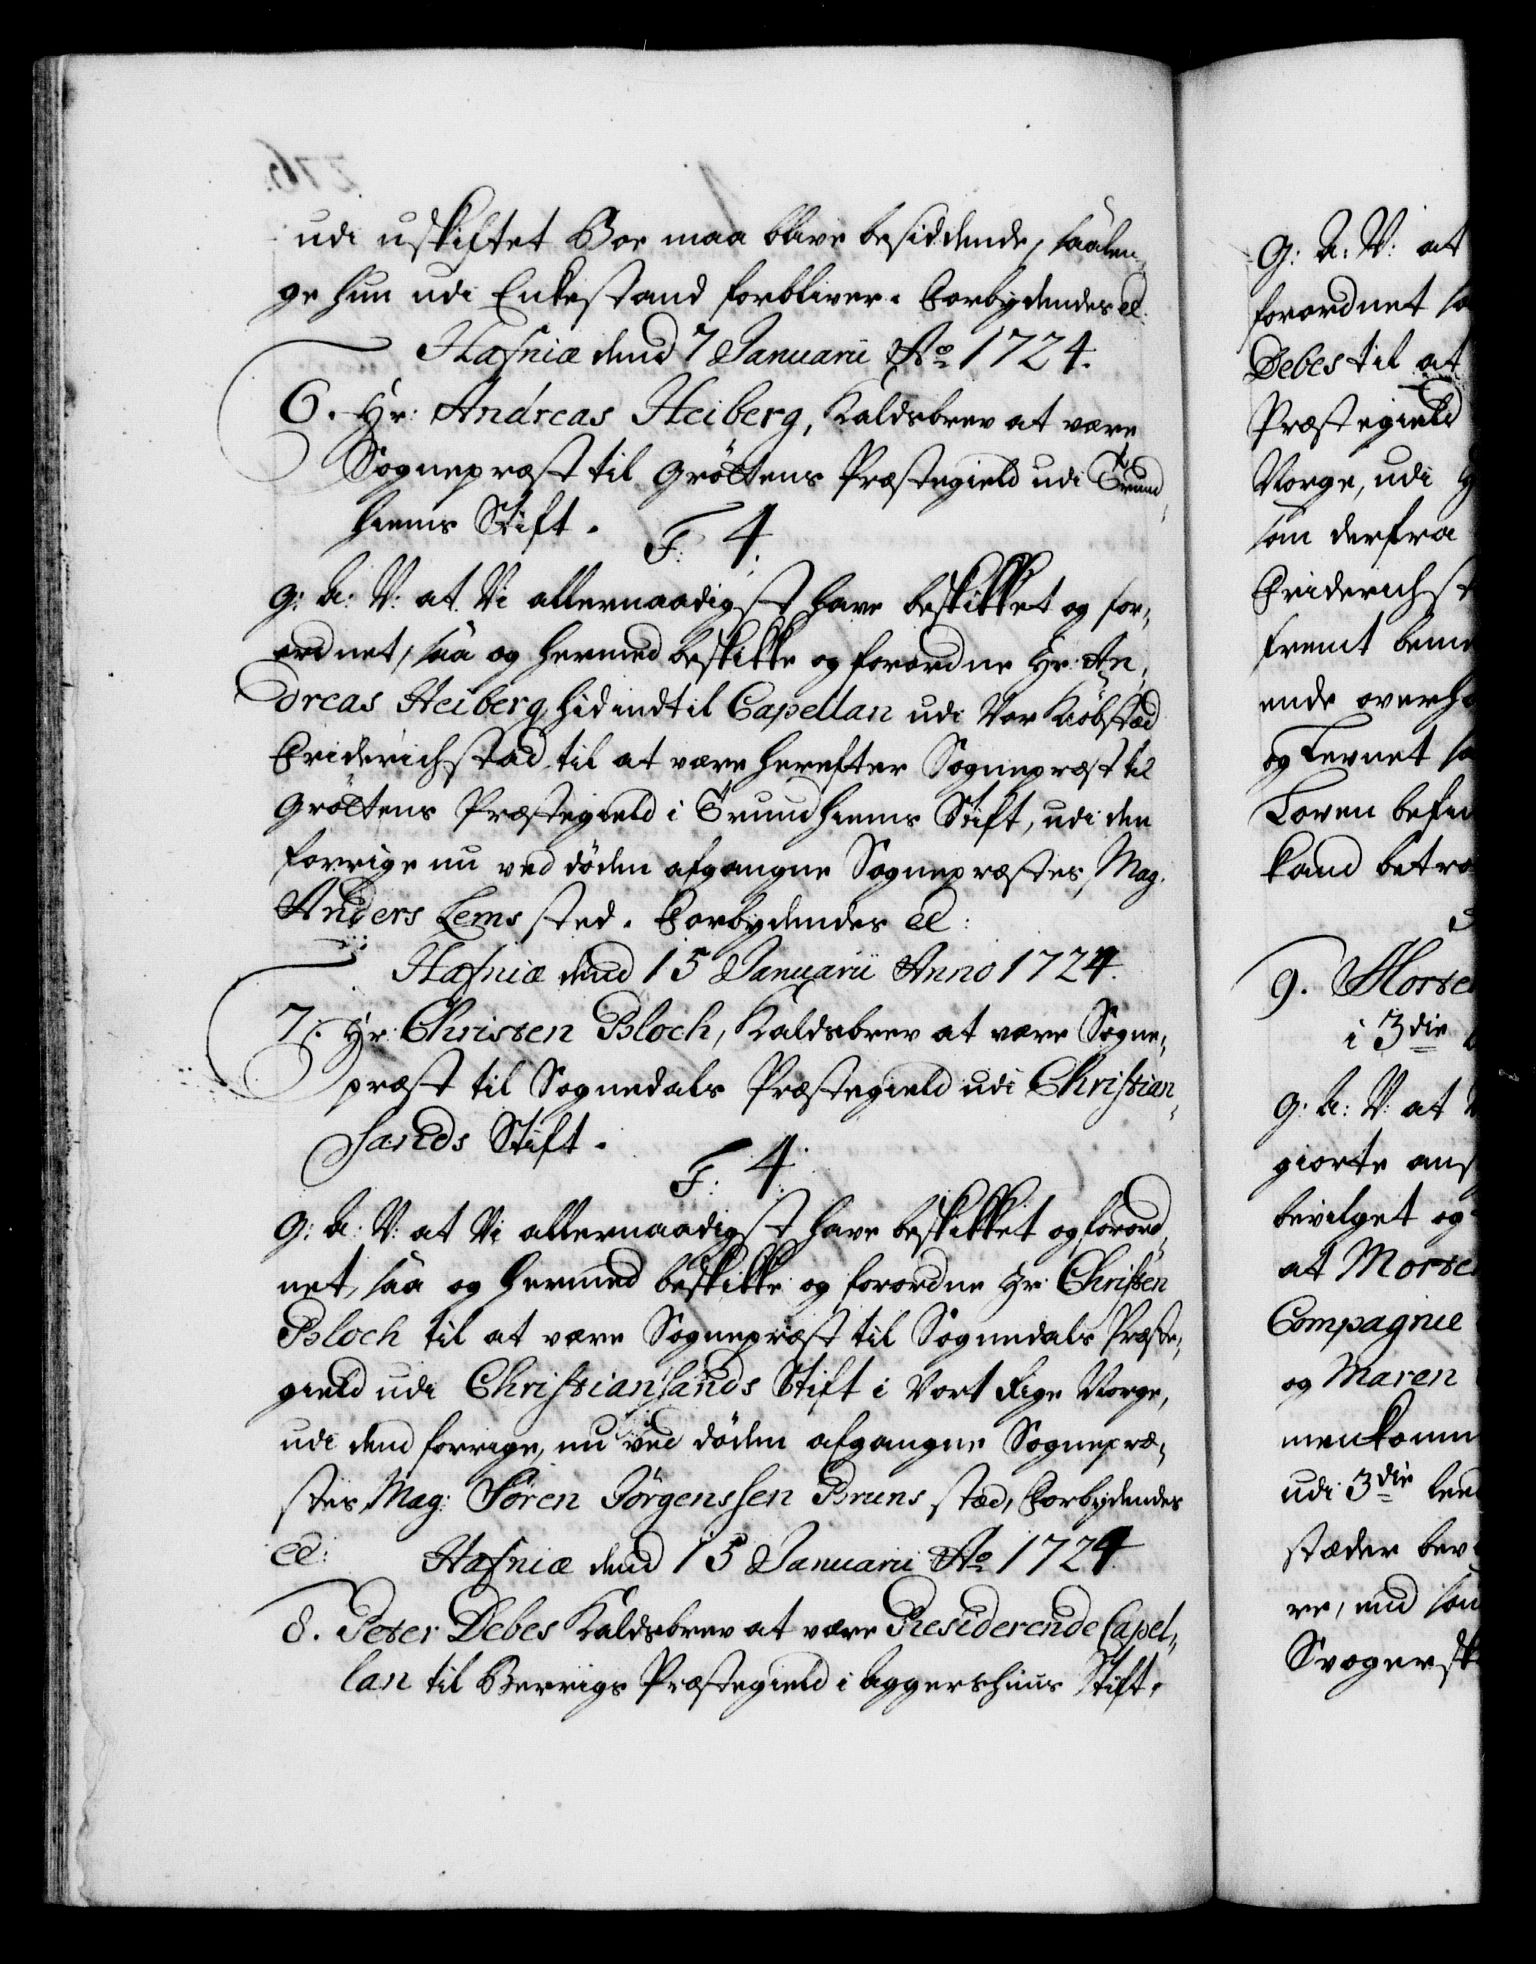 udi uskiftet Boe maa blive besiddende, saalen,
ge hun udi Enkestand forbliver. Forbydendes etc:
Hafniæ dend 7 Januarii Ao 1724.
6. Hr: Andreas Heiberg, Kaldsbrev at være
Sognepræst til Gröttens Præstegield udi Trund,
hiems Stift.
F: 4.
G: A: V: at Vi allernaadigst have beskikket og for,
ordnet, saa og hermed beskikke og forordne Hr: An,
dreas Heiberg, hidindtil Capellan udi Vor Kiöbstæd
Friderichstad, til at være herefter Sognepræst til
Gröttens Præstegield i Trundhiems Stift, udi den
forrige nu ved döden afgangne Sognepræstes, Mag.
Anders Lems sted. Forbydendes etc:
Hafniæ dend 15 Januarii Anno 1724.
7. Hr: Christen Bloch, Kaldsbrev at være Sogne,
præst til Sognedals Præstegield udi Christian,
sands Stift.
F: 4.
G: A: V: at Vi allernaadigst have beskikket og forord,
net, saa og hermed beskikke og forordne Hr: Christen
Bloch til at være Sognepræst til Sognedals Præste,
gield udi Christiansands Stift i Vort Rige Norge,
udi dend forrige, nu ved döden afgangne Sognepræ,
stes Mag: Sören Jörgenssen Bruns stæd, Forbydendes
etc: Hafniæ dend 15 Januarii Ao 1724.
8. Peter Debes Kaldsbrev at være Residerende Capel,
lan til Berrigs Præstegield i Aggershuus Stift.
G: A: V: at
forordnet
Debes til at
Præstegield
Norge, udi
som derfra
Friderichst
fremt bem
ende overh
og Levnet
Loven befa
kand betræ
9. Morten
i 3die
G: A: V: at
giorte ans
bevilget og
at Morten
Compagnie
og Maren
menkomm
udi 3die leed
stæder bev
re, end som
Svogersk